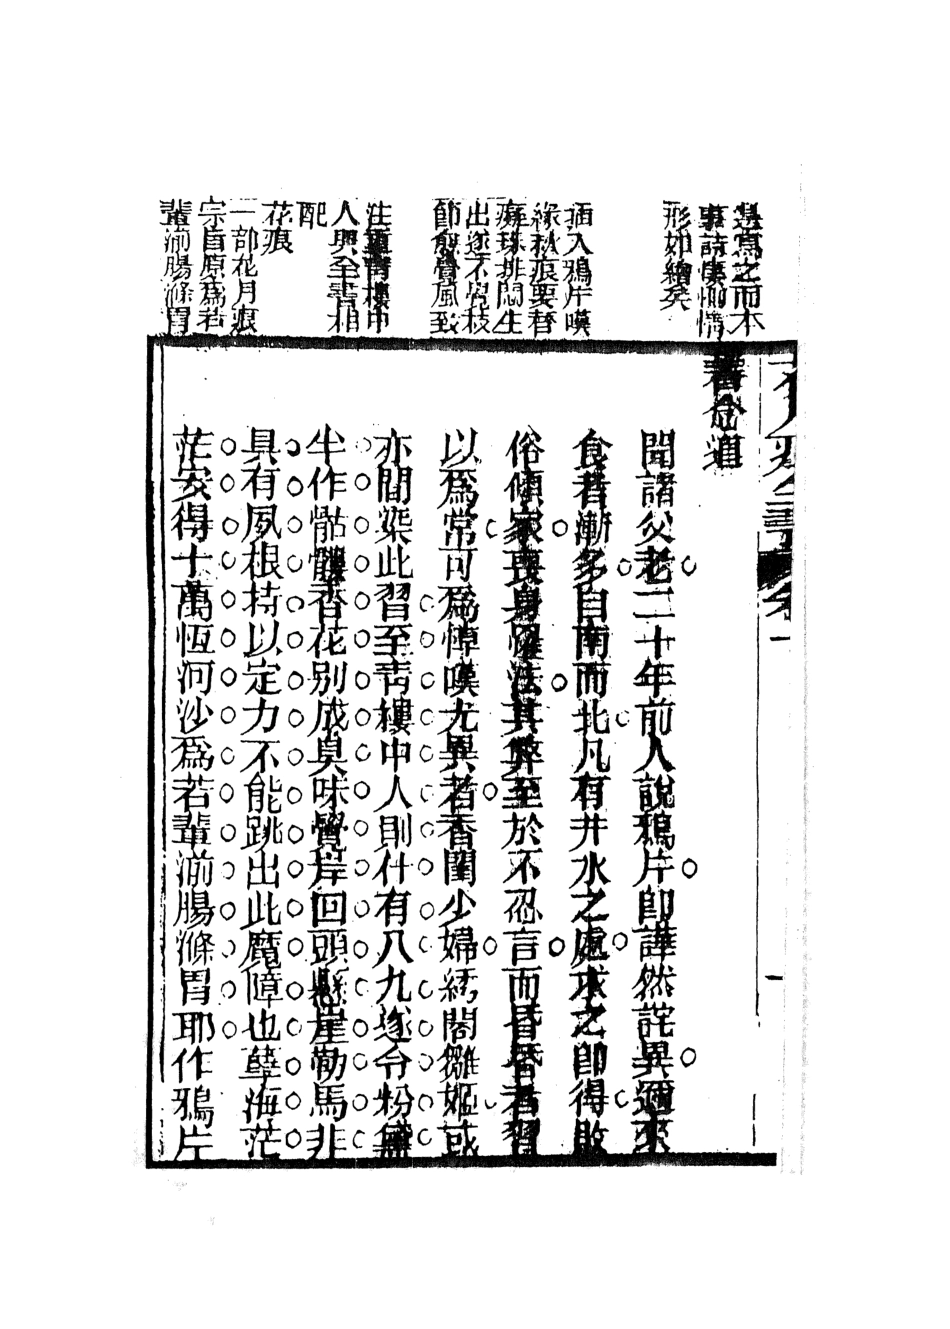 寫之而本
事詩悽惻情
形如繪矣
插入鴉片嘆
緣秋痕要替
癡珠排悶生
出遂不覺枝
節愈覺風致
注重靑樓中
人與全書相
配
花痕
一部花月痕
宗旨原爲若
輩湔腸滌胃
全書
卷一
一
道
聞諸父老二十年前人說鴉片卽譁然詫異邇來
食者漸多自南而北凡有井水之處求之卽得敗
俗傾家喪身罹法其弊至於不忍言而昏昏者習
以爲常可爲悼嘆尤異者香閨少婦綉閣雛姬或
亦間染此習至靑樓中人則什有八九遂令粉黛
半作骷髏香花别成臭味覺岸回頭懸崖勒馬非
具有夙根持以定力不能跳出此魔障也孽海茫
茫安得十萬恆河沙爲若輩湔腸滌胃耶作鴉片